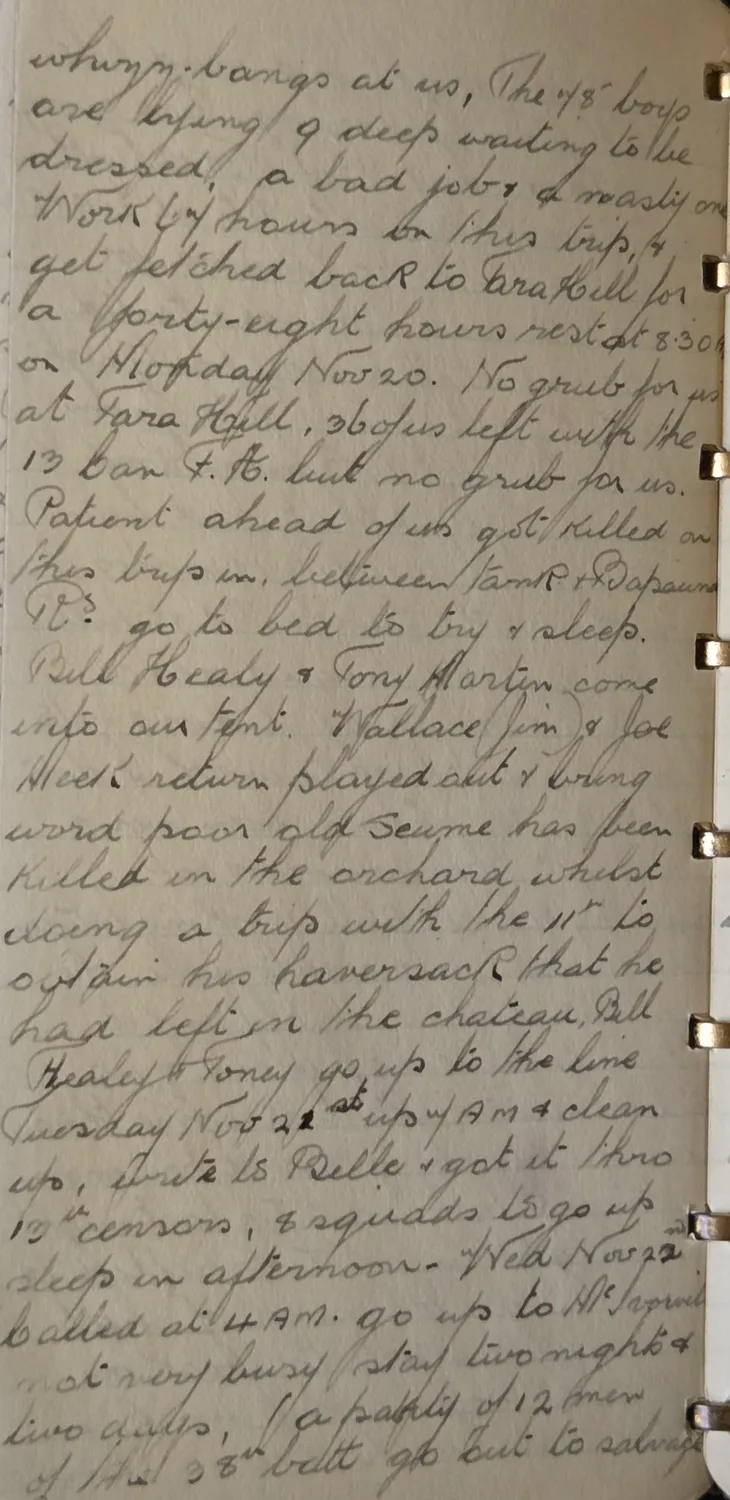 whizz-bangs at us, The 48 boys
are lying 9 deep waiting to be
dressed, a bad job & a nasty one
Work 64 hours on this trip, &
get fetched back to Tara Hill for
a forty-eight hours rest at 8.30
on Monday Nov 20. No grub for us
at Tara Hill, 36 of us left with the
13 Can F.A. but no grub for us.
Patient ahead of us got killed on
this trip in, between tank & Bapaume
Rds. go to bed to try & sleep.
Bill Healy & Tony Martin come
into our tent. Wallace (Jim) & Joe
Meek return played out & bring
word poor old Seume has been
killed in the orchard whilst
doing a trip with the 11th to
obtain his haversack that he
had left in the chateau, Bill
Healey & Toney go up to the line
Tuesday Nov 21st up 7 AM & clean
up, write to Belle & got it thro
13th censors, 8 squads to go up
sleep in afternoon - Wed Nov 22nd
Called at 4 AM. go up to
not very busy stay two nights &
two days, (a party of 12 men
of the 38th batt go out to salvage